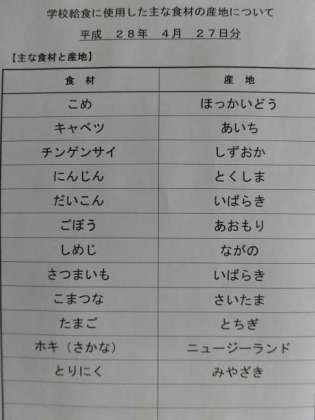 学校給食に使用した主な食材の産地について
平成　２８年　４月　２７日分
【主な食材と産地】
食　材　産　地
こめ　ほっかいどう
キャベツ　あいち
チンゲンサイ　しずおか
にんじん　とくしま
だいこん　いばらき
ごぼう　あおもり
しめじ　ながの
さつまいも　いばらき
こまつな　さいたま
たまご　とちぎ
ホキ（さかな）　ニュージーランド
とりにく　みやざき